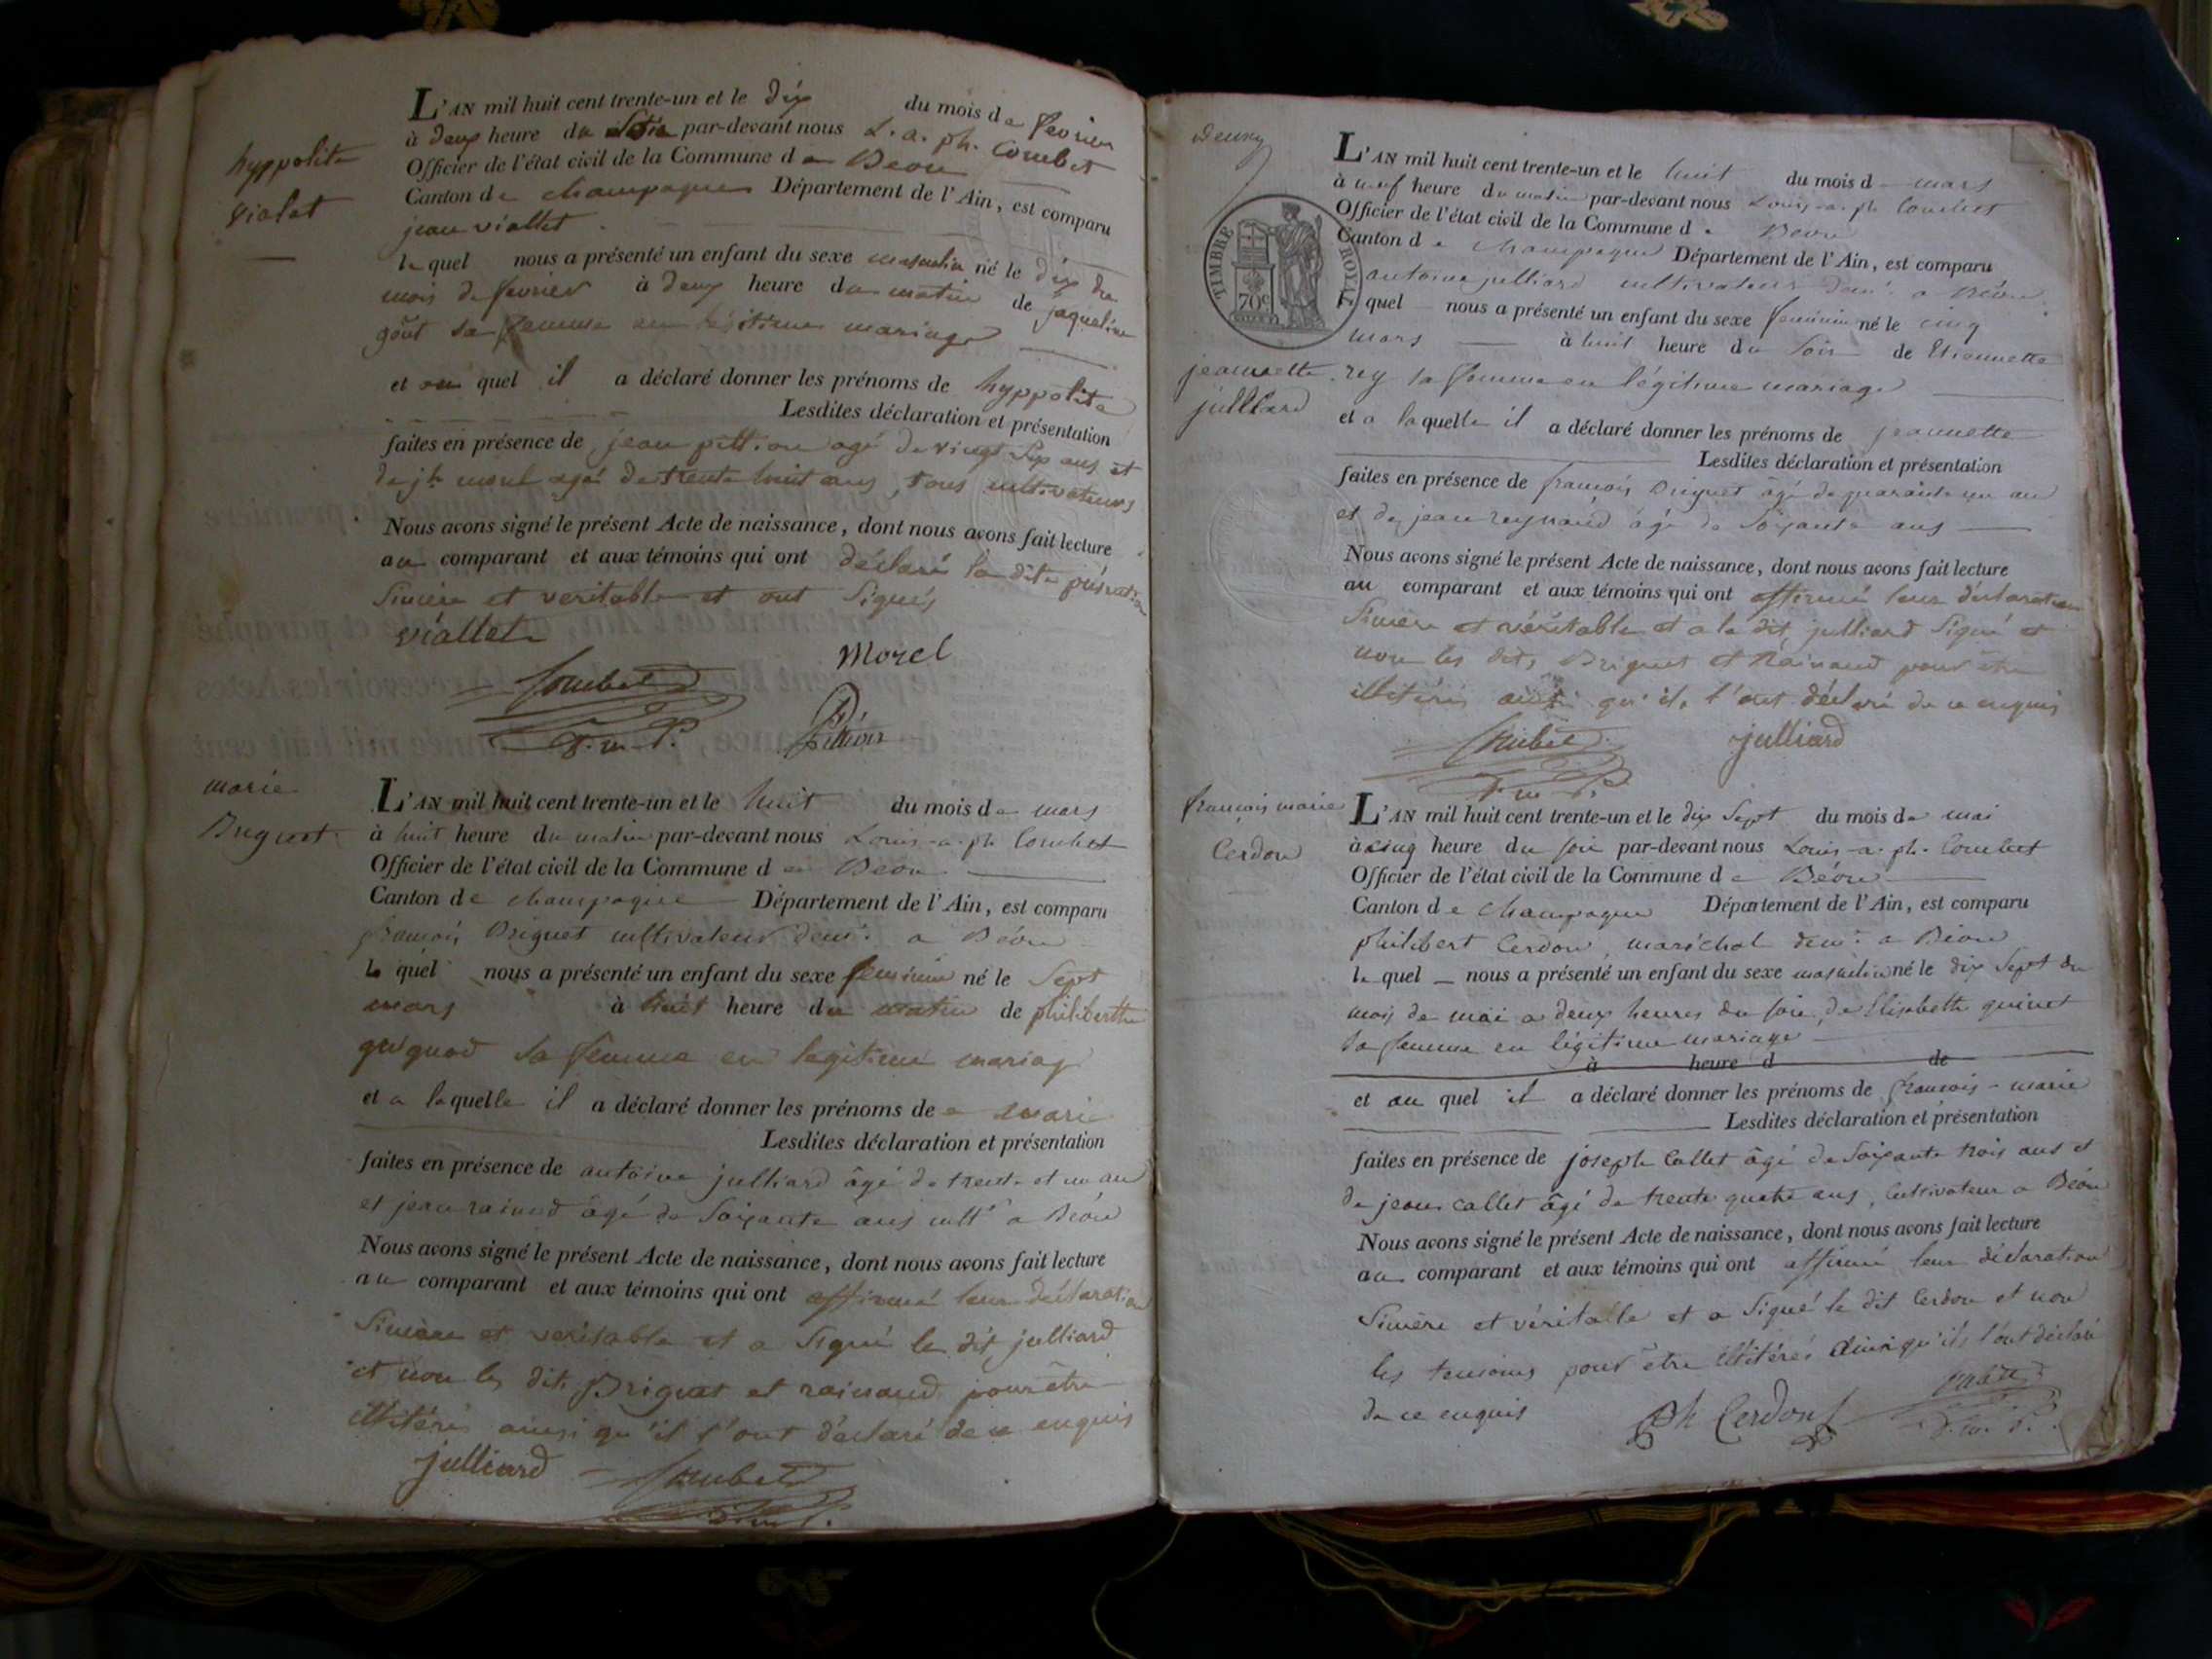 hyppolite
violet
L'AN mil huit cent trente-un et le dix du mois de fevrier
à deux heure du soir par-devant nous L. a. ph. Combet
Officier de l'état civil de la Commune de Beon
Canton de champagne Département de l'Ain, est comparu
jean viallet
lequel nous a présenté un enfant du sexe masculin né le dix du
mois de fevrier à deux heure du matin de jaqueline
goût sa femme en légitime mariage
et au quel il a déclaré donner les prénoms de hyppolite
Lesdites déclaration et présentation
faites en présence de jean pillion agé de vingt six ans et
de jh. morel agé de trente huit ans, tous cultivateurs
Nous avons signé le présent Acte de naissance, dont nous avons fait lecture
au comparant et aux témoins qui ont déclaré la dite
Sincère et veritable et ont Signés
viallet
Morel
Combet
D. m. P.
Pillion
marie
Briguet
L'AN mil huit cent trente-un et le huit du mois de mars
à huit heure du matin par-devant nous Louis-a-ph Combet
Officier de l'état civil de la Commune de Béon
Canton de champagne Département de l'Ain, est comparu
françois Briguet cultivateur dem.t a Béon
le quel nous a présenté un enfant du sexe feminin né le Sept
mars à huit heure du matin de philiberthe
sa femme en legitime mariag
et a laquelle il a déclaré donner les prénoms de marie
Lesdites déclaration et présentation
faites en présence de antoine julliard âgé de trente et un an
et jean rainaud âgé de Soixante ans cultr a Béon
Nous avons signé le présent Acte de naissance, dont nous avons fait lecture
au comparant et aux témoins qui ont affirmé leur declaration
Sincère et veritable et a Signé le dit julliard
et non les dits Briguet et rainaud pour être
illitérés ainsi qu'il l'ont déclaré de ce enquis
julliard
Combet
D. m. P.
L'AN mil huit cent trente-un et le huit du mois d mars
à neuf heure du matin par-devant nous Louis-a-ph Combet
Officier de l'état civil de la Commune de Béon
TIMBRE ROYAL
70c
Canton de champagne Département de l'Ain, est comparu
antoine julliard cultivateur dem.t a Béon
le quel nous a présenté un enfant du sexe feminin né le cinq
mars à huit heure du Soir de Etiennette
jeannette
julliard
rey sa femme en légitime mariage
et a laquelle il a déclaré donner les prénoms de jeannette
Lesdites déclaration et présentation
faites en présence de françois Briguet âgé de quarante un an
et de jean reynaud âgé de Soixante ans
Nous avons signé le présent Acte de naissance, dont nous avons fait lecture
au comparant et aux témoins qui ont affirmé leur déclaration
Sincère et véritable et a le dit julliard Signé et
non les dits Briguet et Rainaud pour être
illitérés ainsi qu'ils l'ont déclaré de ce enquis
Combet
D. m. P.
julliard
françois marie
Cerdon
L'AN mil huit cent trente-un et le dix Sept du mois de mai
à cinq heure du soir par-devant nous Louis-a-ph. Combet
Officier de l'état civil de la Commune de Béon
Canton de Champagne Département de l'Ain, est comparu
philibert Cerdon, maréchal dem.t a Béon
le quel nous a présenté un enfant du sexe masculin né le dix Sept du
mois de mai a deux heures du soir, de Elisabeth quinet
sa femme en légitime mariage
à heure d de
et au quel il a déclaré donner les prénoms de françois-marie
Lesdites déclaration et présentation
faites en présence de joseph Callet âgé de Soixante trois ans et
de jean callet âgé de trente quatre ans, Cultivateur a Béon
Nous avons signé le présent Acte de naissance, dont nous avons fait lecture
au comparant et aux témoins qui ont affirmé leur déclaration
Sincère et véritable et a Signé le dit Cerdon et non
les temoins pour être illitérés Ainsi qu'ils l'ont déclaré
de ce enquis
Ph Cerdon
D. m. P.